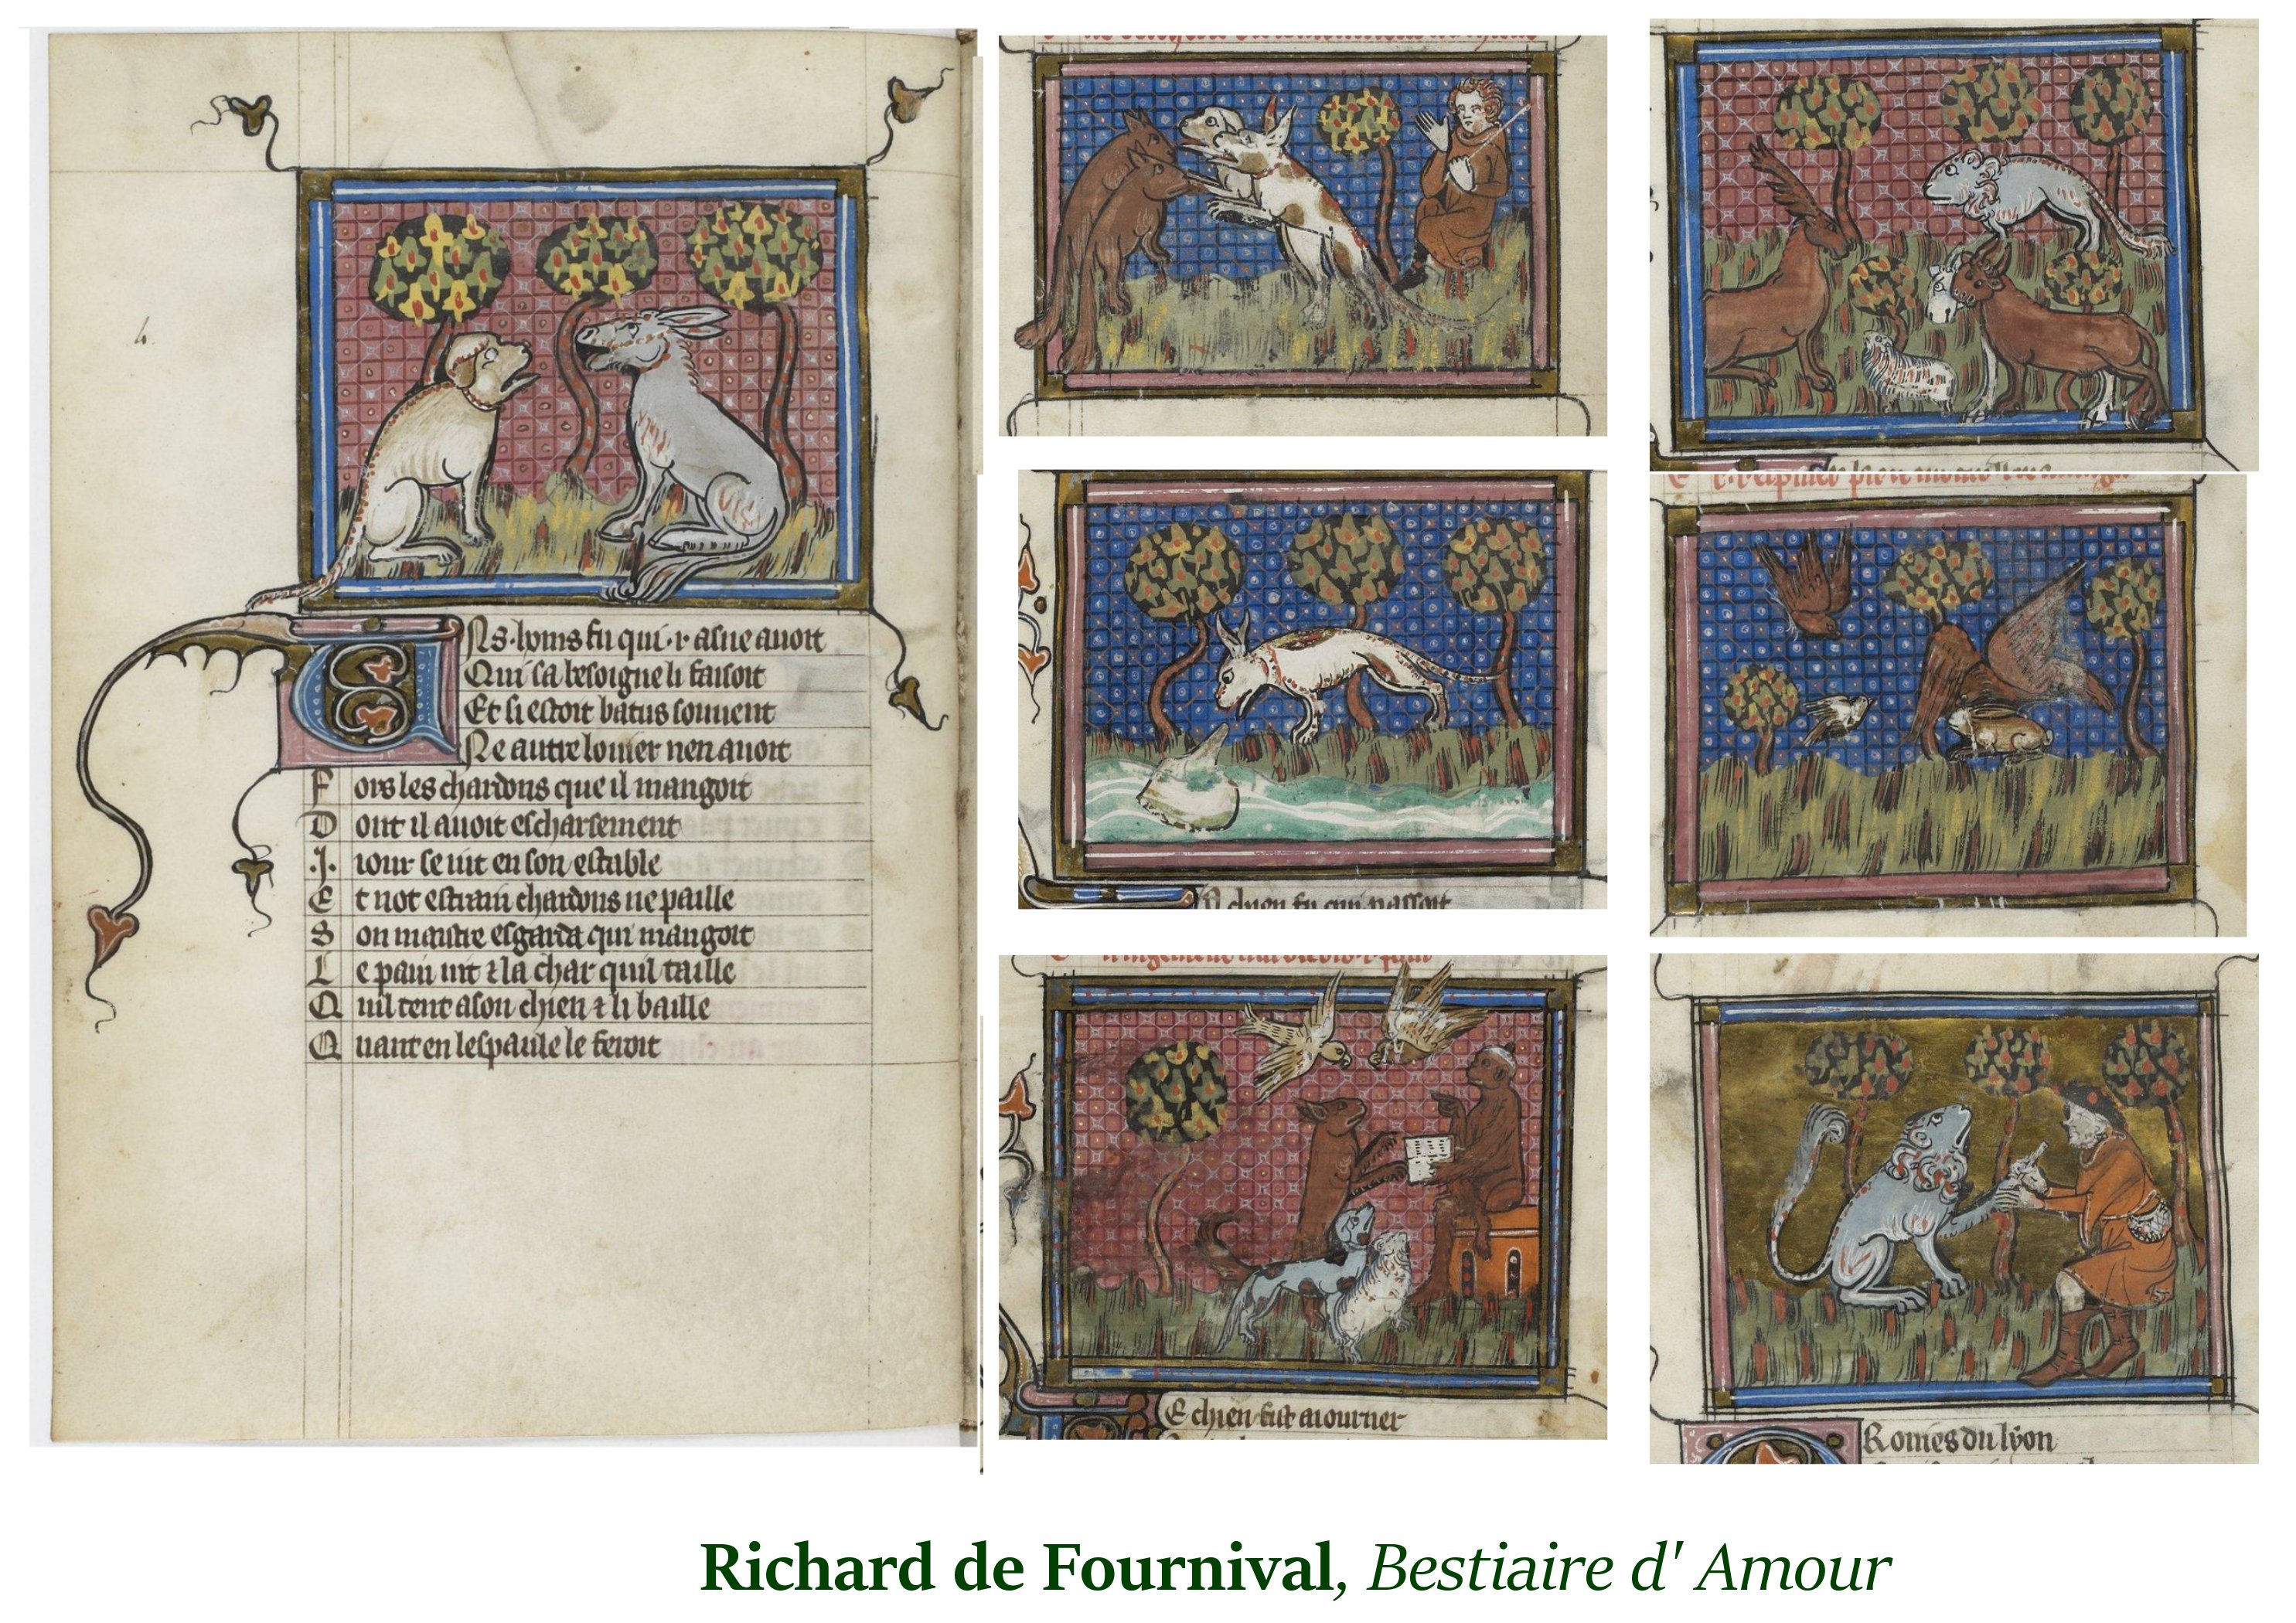 4.
Ns·homs fu qui·i· asne auoit
Qui sa besoigne li faisoit
Et si estoit batus souuent
Ne autre louier nen auoit
Fors les chardons que il mangoit
Dont il auoit escharsement
.J. iour se uit en son estable
Et not estrain chardons ne paille
Son maistre esgarda qui mangoit
Le pain uit ⁊ la char quil taille
Quil tent a son chien ⁊ li baille
Quant en lespaule le feroit
N chien fu qui passoit
E chien fist aiourner
Romes du lyon
Richard de Fournival, Bestiaire d' Amour